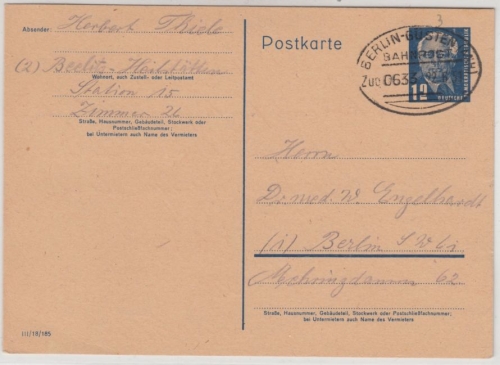 Absender: Herbert Thiele
(2) Beelitz-Heilstätten
Wohnort, auch Zustell- oder Leitpostamt
Station 15
Zimmer 26
Straße, Hausnummer, Gebäudeteil, Stockwerk oder
Postschließfachnummer;
bei Untermietern auch Name des Vermieters
III/18/185
Postkarte
3
BERLIN-GÜSTEN
BAHNPOST
Zug 0633
12
DEUTSCHE
Herrn
Dr. med. W. Engelhardt
(1) Berlin SW 61
Mehringdamm 62
Straße, Hausnummer, Gebäudeteil, Stockwerk oder Postschließfachnummer;
bei Untermietern auch Name des Vermieters